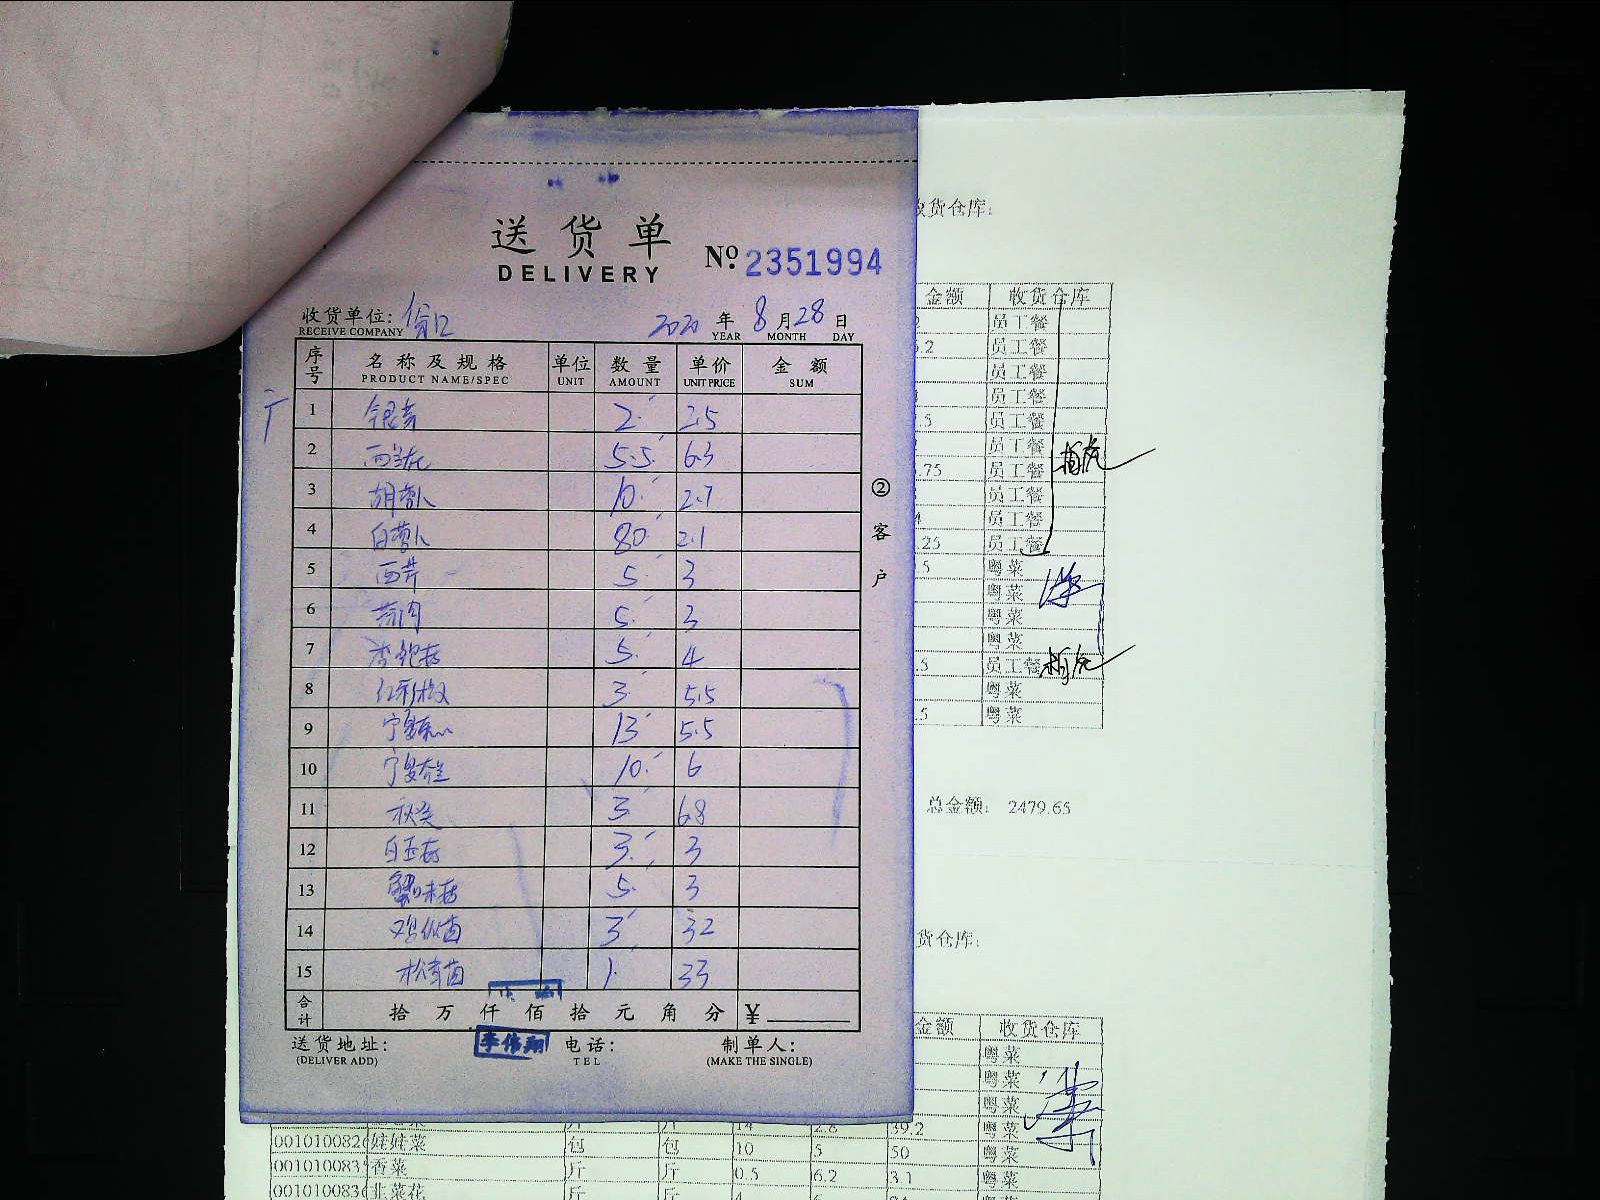 送货单
DELIVERY
No. 2351994
收货单位:
RECEIVE COMPANY
2020 年 8 月 28 日
YEAR MONTH DAY
序号 名称及规格 单位 数量 单价 金额
PRODUCT NAME/SPEC UNIT AMOUNT UNIT PRICE SUM
1 银芽 2 2.5
2 西兰花 5.5 6.3
3 胡萝卜 10 2.7
4 白萝卜 80 2.1
5 西芹 5 3
6 5 3
7 杏鲍菇 5 4
8 红彩椒 3 5.5
9 宁夏菜心 13 5.5
10 宁夏芥兰 10 6
11 秋葵 3 6.8
12 白玉菇 3 3
13 蟹味菇 5 3
14 鸡枞菌 3 32
15 松茸菌 1 33
合计 拾 万 仟 佰 拾 元 角 分 ¥
送货地址: 李伟翔 电话: 制单人:
(DELIVER ADD) TEL (MAKE THE SINGLE)
②客户
收货仓库:
金额 收货仓库
员工餐
.2 员工餐
员工餐
员工餐
.5 员工餐
员工餐
.75 员工餐
员工餐
员工餐
.25 员工餐
.5 粤菜
粤菜
粤菜
粤菜
.5 员工餐
粤菜
.5 粤菜
总金额: 2479.65
货仓库:
金额 收货仓库
粤菜
粤菜
粤菜
斤 斤 14 2.8 39.2 粤菜
001010082 娃娃菜 包 包 10 5 50 粤菜
001010083 香菜 斤 斤 0.5 6.2 3.1 粤菜
001010083 韭菜花 斤 斤 4 粤菜